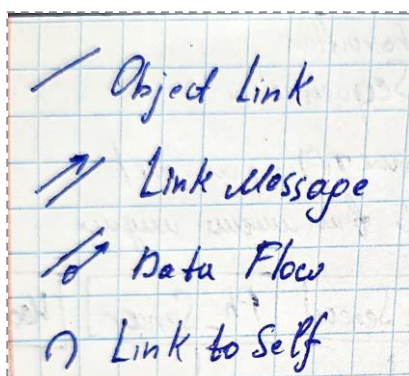 Object Link
Link Message
Data Flow
Link to Self